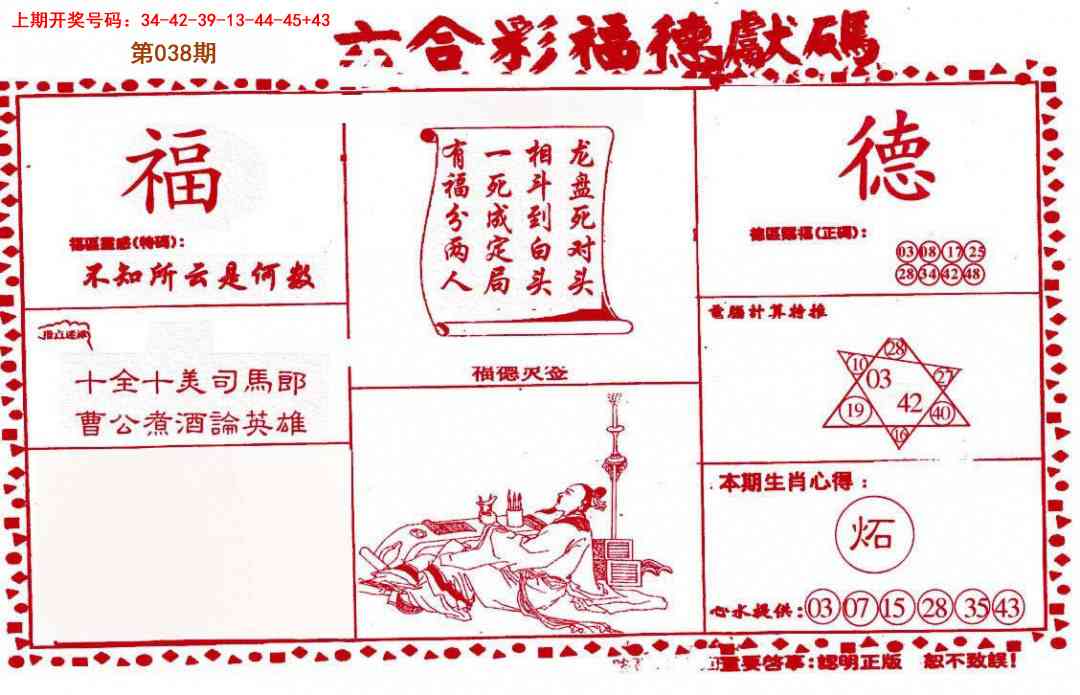 上期开奖号码：34-42-39-13-44-45+43
第038期
六合彩福德獻碼
福
福區靈感(特碼)：
不知所云是何数
十全十美司馬郎
曹公煮酒論英雄
龙盘死对头
相斗到白头
一死成定局
有福分两人
福德灵签
德
德區賜福(正碼)：
03 08 17 25
28 34 42 48
電腦計算特推
28
10 03 27
19 42 40
16
本期生肖心得：
炻
心水提供：03 07 15 28 35 43
重要啓事：認明正版 恕不致誤！